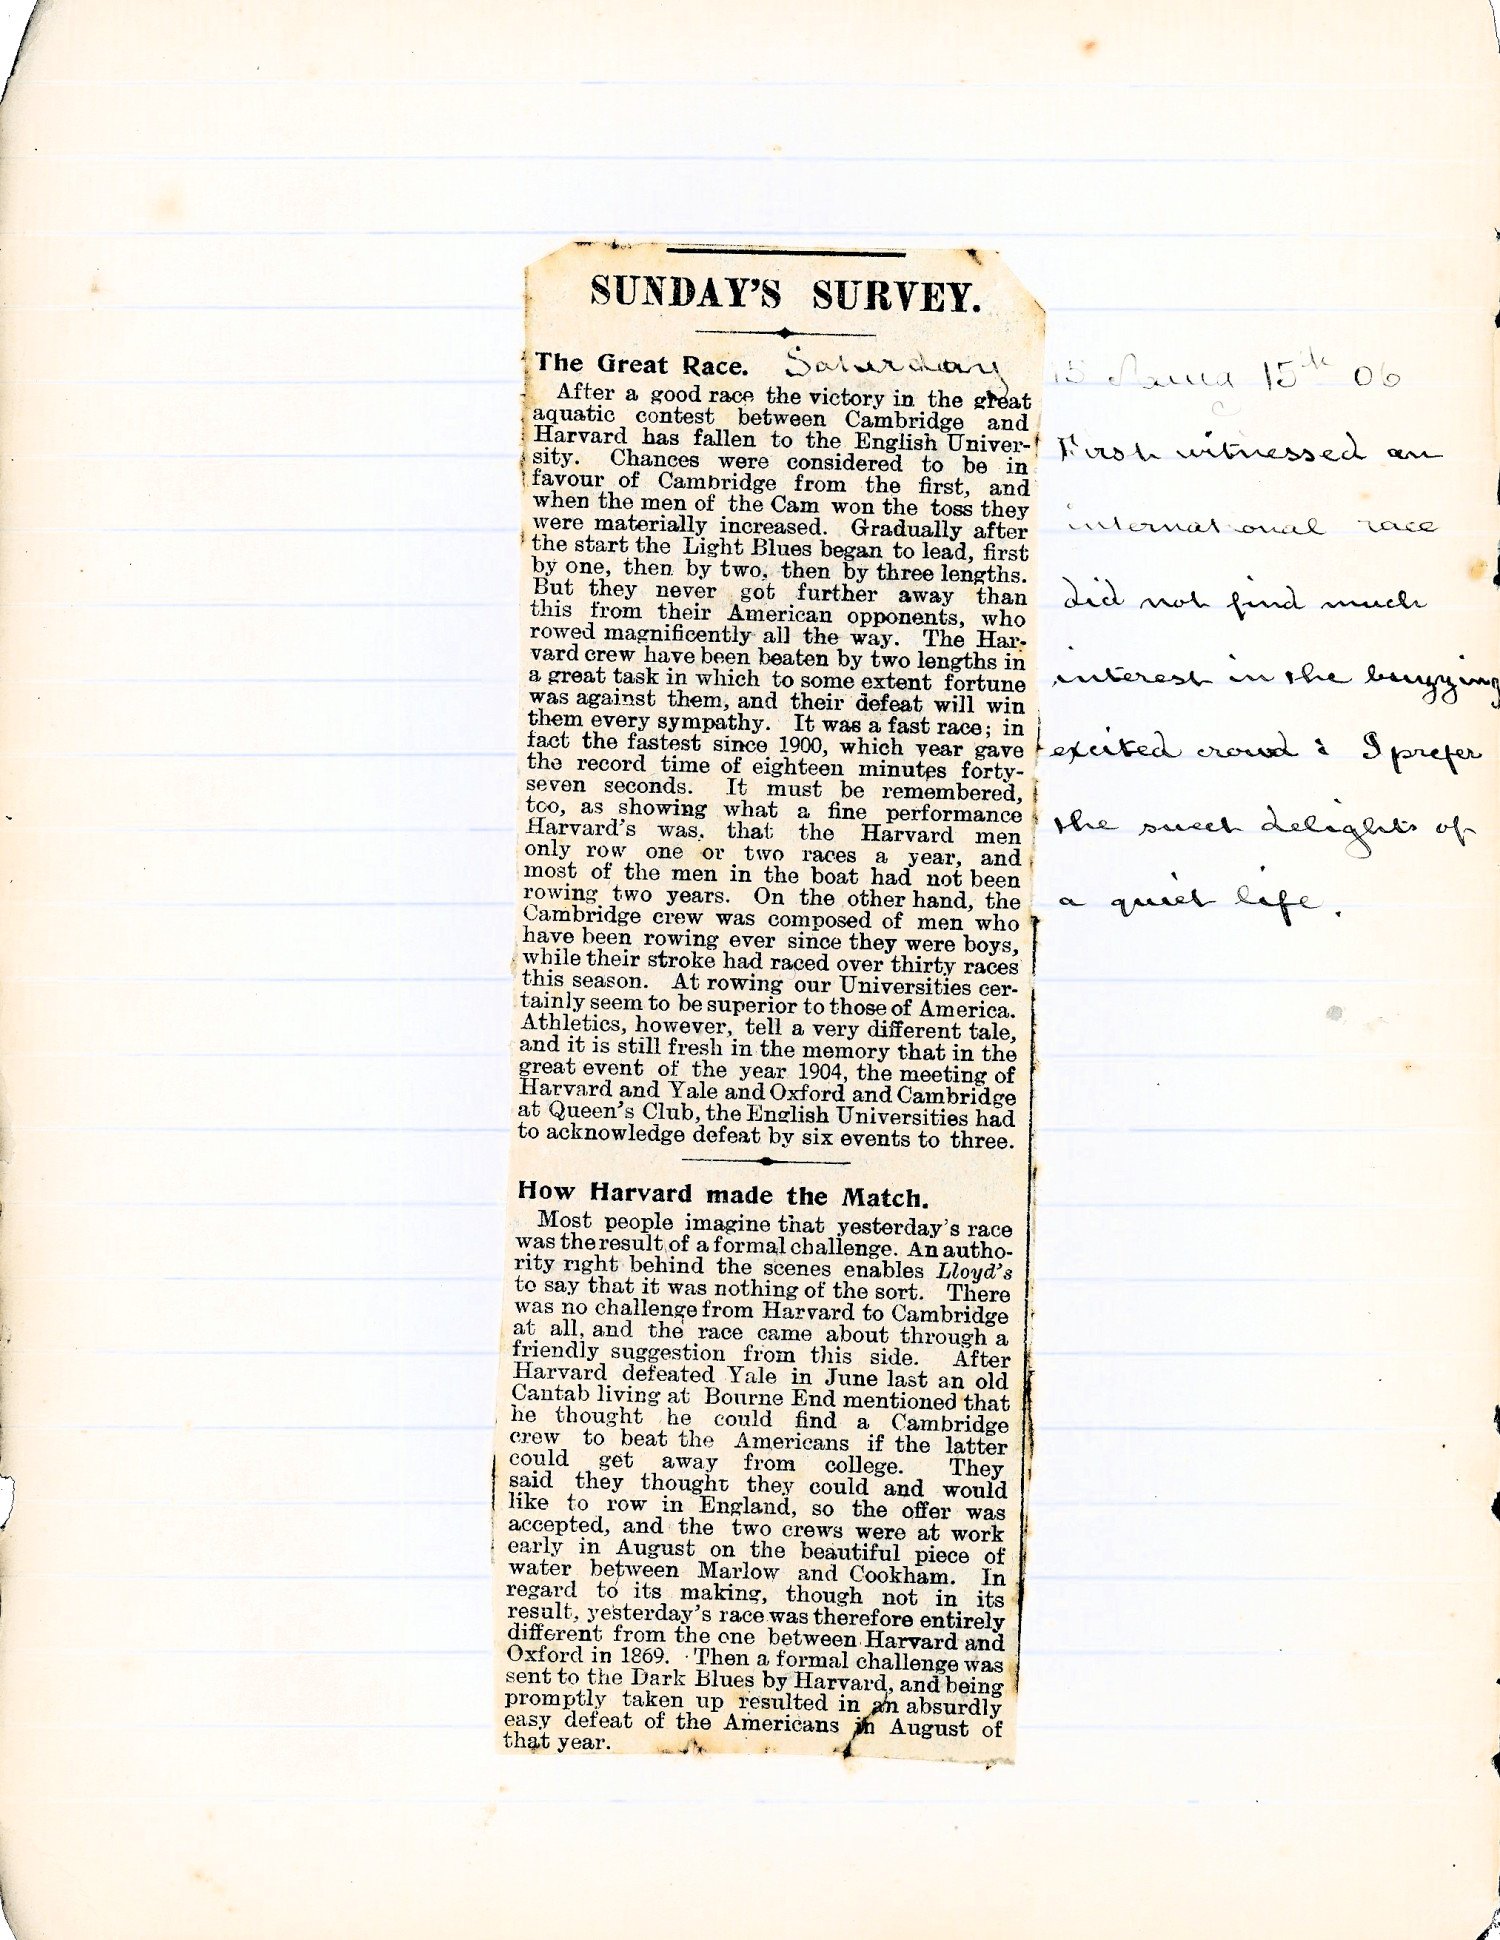 SUNDAY'S SURVEY.
The Great Race. Saturday
After a good race the victory in the great
aquatic contest between Cambridge and
Harvard has fallen to the English Univer-
sity. Chances were considered to be in
favour of Cambridge from the first, and
when the men of the Cam won the toss they
were materially increased. Gradually after
the start the Light Blues began to lead, first
by one, then by two, then by three lengths.
But they never got further away than
this from their American opponents, who
rowed magnificently all the way. The Har-
vard crew have been beaten by two lengths in
a great task in which to some extent fortune
was against them, and their defeat will win
them every sympathy. It was a fast race; in
fact the fastest since 1900, which year gave
the record time of eighteen minutes forty-
seven seconds. It must be remembered,
too, as showing what a fine performance
Harvard's was, that the Harvard men
only row one or two races a year, and
most of the men in the boat had not been
rowing two years. On the other hand, the
Cambridge crew was composed of men who
have been rowing ever since they were boys,
while their stroke had raced over thirty races
this season. At rowing our Universities cer-
tainly seem to be superior to those of America.
Athletics, however, tell a very different tale,
and it is still fresh in the memory that in the
great event of the year 1904, the meeting of
Harvard and Yale and Oxford and Cambridge
at Queen's Club, the English Universities had
to acknowledge defeat by six events to three.
How Harvard made the Match.
Most people imagine that yesterday's race
was the result of a formal challenge. An autho-
rity right behind the scenes enables Lloyd's
to say that it was nothing of the sort. There
was no challenge from Harvard to Cambridge
at all, and the race came about through a
friendly suggestion from this side. After
Harvard defeated Yale in June last an old
Cantab living at Bourne End mentioned that
he thought he could find a Cambridge
crew to beat the Americans if the latter
could get away from college. They
said they thought they could and would
like to row in England, so the offer was
accepted, and the two crews were at work
early in August on the beautiful piece of
water between Marlow and Cookham. In
regard to its making, though not in its
result, yesterday's race was therefore entirely
different from the one between Harvard and
Oxford in 1869. Then a formal challenge was
sent to the Dark Blues by Harvard, and being
promptly taken up resulted in an absurdly
easy defeat of the Americans in August of
that year.
15th 06
First witnessed an
international race
did not find much
interest in the
excited crowd : I prefer
the sweet delights of
a quiet life.